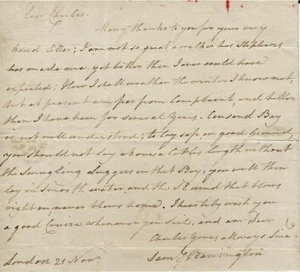 Dear Charles.
Many thanks to you for your very
kind letter; I am not so great a
has on ade one, yet better than I ever could have
expected; How I shall weather the winter I know not,
but at present am free from Complaint, and better
than I have been for several Years. Bay
is not well understood; to lay safe on good Ground,
you should not lay above a Cables length without
the Smuggling Luggers in that Bay; you will then
lay in Smooth water, and the Wind that blows
right on never blows home. I heartily wish you
a good Cruise whenever you Sail, and am Dear
Charles Yours always Sincerely
London 21 Novr. Saml. Barrington